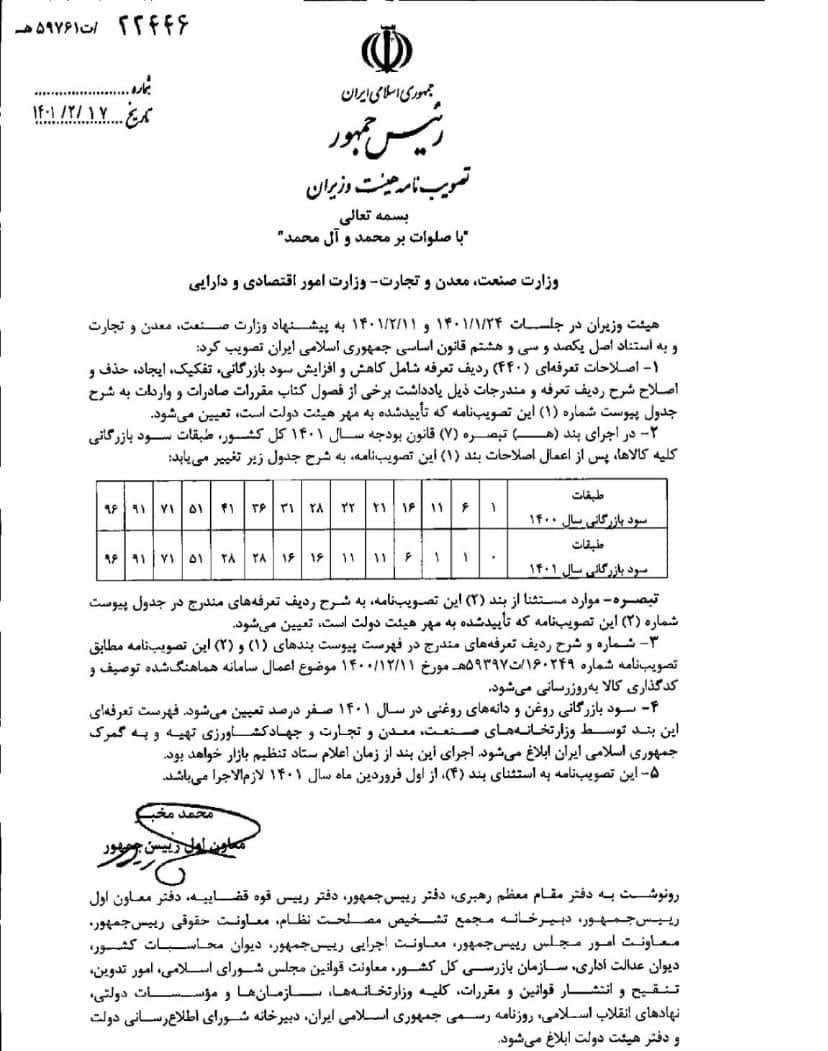 ۲۲۴۴۶ /ت۵۹۷۶۱هـ
شماره
تاریخ ۱۴۰۱/۲/۱۷
جمهوری اسلامی ایران
رئیس جمهور
تصویب نامه هیئت وزیران
بسمه تعالی
"با صلوات بر محمد و آل محمد"
وزارت صنعت، معدن و تجارت- وزارت امور اقتصادی و دارایی
هیئت وزیران در جلسات ۱۴۰۱/۱/۲۴ و ۱۴۰۱/۲/۱۱ به پیشنهاد وزارت صنعت، معدن و تجارت
و به استناد اصل یکصد و سی و هشتم قانون اساسی جمهوری اسلامی ایران تصویب کرد:
۱- اصلاحات تعرفه‌ای (۴۴۰) ردیف تعرفه شامل کاهش و افزایش سود بازرگانی، تفکیک، ایجاد، حذف و
اصلاح شرح ردیف تعرفه و مندرجات ذیل یادداشت برخی از فصول کتاب مقررات صادرات و واردات به شرح
جدول پیوست شماره (۱) این تصویب‌نامه که تأییدشده به مهر هیئت دولت است، تعیین می‌شود.
۲- در اجرای بند (هـ) تبصره (۷) قانون بودجه سال ۱۴۰۱ کل کشور، طبقات سود بازرگانی
کلیه کالاها، پس از اعمال اصلاحات بند (۱) این تصویب‌نامه، به شرح جدول زیر تغییر می‌یابد:
طبقات
سود بازرگانی سال ۱۴۰۰ ۱ ۶ ۱۱ ۱۶ ۲۱ ۲۲ ۲۸ ۳۱ ۳۶ ۴۱ ۵۱ ۷۱ ۹۱ ۹۶
طبقات
سود بازرگانی سال ۱۴۰۱ ۰ ۱ ۱ ۶ ۱۱ ۱۱ ۱۶ ۱۶ ۲۸ ۲۸ ۵۱ ۷۱ ۹۱ ۹۶
تبصره- موارد مستثنا از بند (۲) این تصویب‌نامه، به شرح ردیف تعرفه‌های مندرج در جدول پیوست
شماره (۲) این تصویب‌نامه که تأییدشده به مهر هیئت دولت است، تعیین می‌شود.
۳- شماره و شرح ردیف تعرفه‌های مندرج در فهرست پیوست بندهای (۱) و (۲) این تصویب‌نامه مطابق
تصویب‌نامه شماره ۱۶۰۲۴۹/ت۵۹۳۹۷هـ مورخ ۱۴۰۰/۱۲/۱۱ موضوع اعمال سامانه هماهنگ‌شده توصیف و
کدگذاری کالا به‌روزرسانی می‌شود.
۴- سود بازرگانی روغن و دانه‌های روغنی در سال ۱۴۰۱ صفر درصد تعیین می‌شود. فهرست تعرفه‌ای
این بند توسط وزارتخانه‌های صنعت، معدن و تجارت و جهادکشاورزی تهیه و به گمرک
جمهوری اسلامی ایران ابلاغ می‌شود. اجرای این بند از زمان اعلام ستاد تنظیم بازار خواهد بود.
۵- این تصویب‌نامه به استثنای بند (۴)، از اول فروردین ماه سال ۱۴۰۱ لازم‌الاجرا می‌باشد.
محمد مخبر
معاون اول رییس جمهور
رونوشت به دفتر مقام معظم رهبری، دفتر رییس‌جمهور، دفتر رییس قوه قضاییه، دفتر معاون اول
رییس‌جمهور، دبیرخانه مجمع تشخیص مصلحت نظام، معاونت حقوقی رییس‌جمهور،
معاونت امور مجلس رییس‌جمهور، معاونت اجرایی رییس‌جمهور، دیوان محاسبات کشور،
دیوان عدالت اداری، سازمان بازرسی کل کشور، معاونت قوانین مجلس شورای اسلامی، امور تدوین،
تنقیح و انتشار قوانین و مقررات، کلیه وزارتخانه‌ها، سازمان‌ها و مؤسسات دولتی،
نهادهای انقلاب اسلامی، روزنامه رسمی جمهوری اسلامی ایران، دبیرخانه شورای اطلاع‌رسانی دولت
و دفتر هیئت دولت ابلاغ می‌شود.